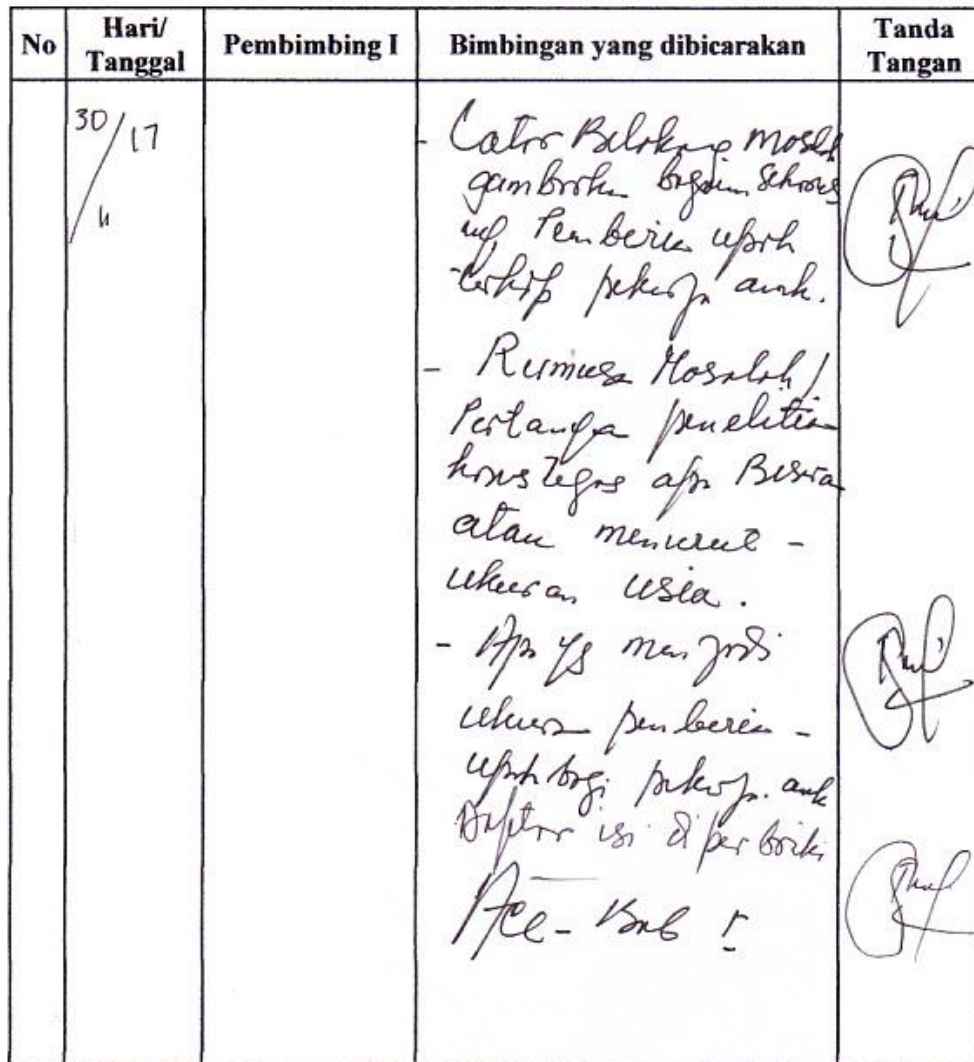 No Hari/ Tanggal Pembimbing I Bimbingan yang dibicarakan Tanda Tangan
30/17
- Latar Belakang Masalah
gambarkan bagaimana
Pemberian upah
terhdp pekerja anak.
- Rumusan Masalah/
Pertanyaan penelitian
harus tegas apa Besaran
atau menurut -
ukuran usia.
- Apa yg menjadi
ukuran pemberian -
upah bagi pekerja anak
Daftar isi diperbaiki
Acc - Bab I